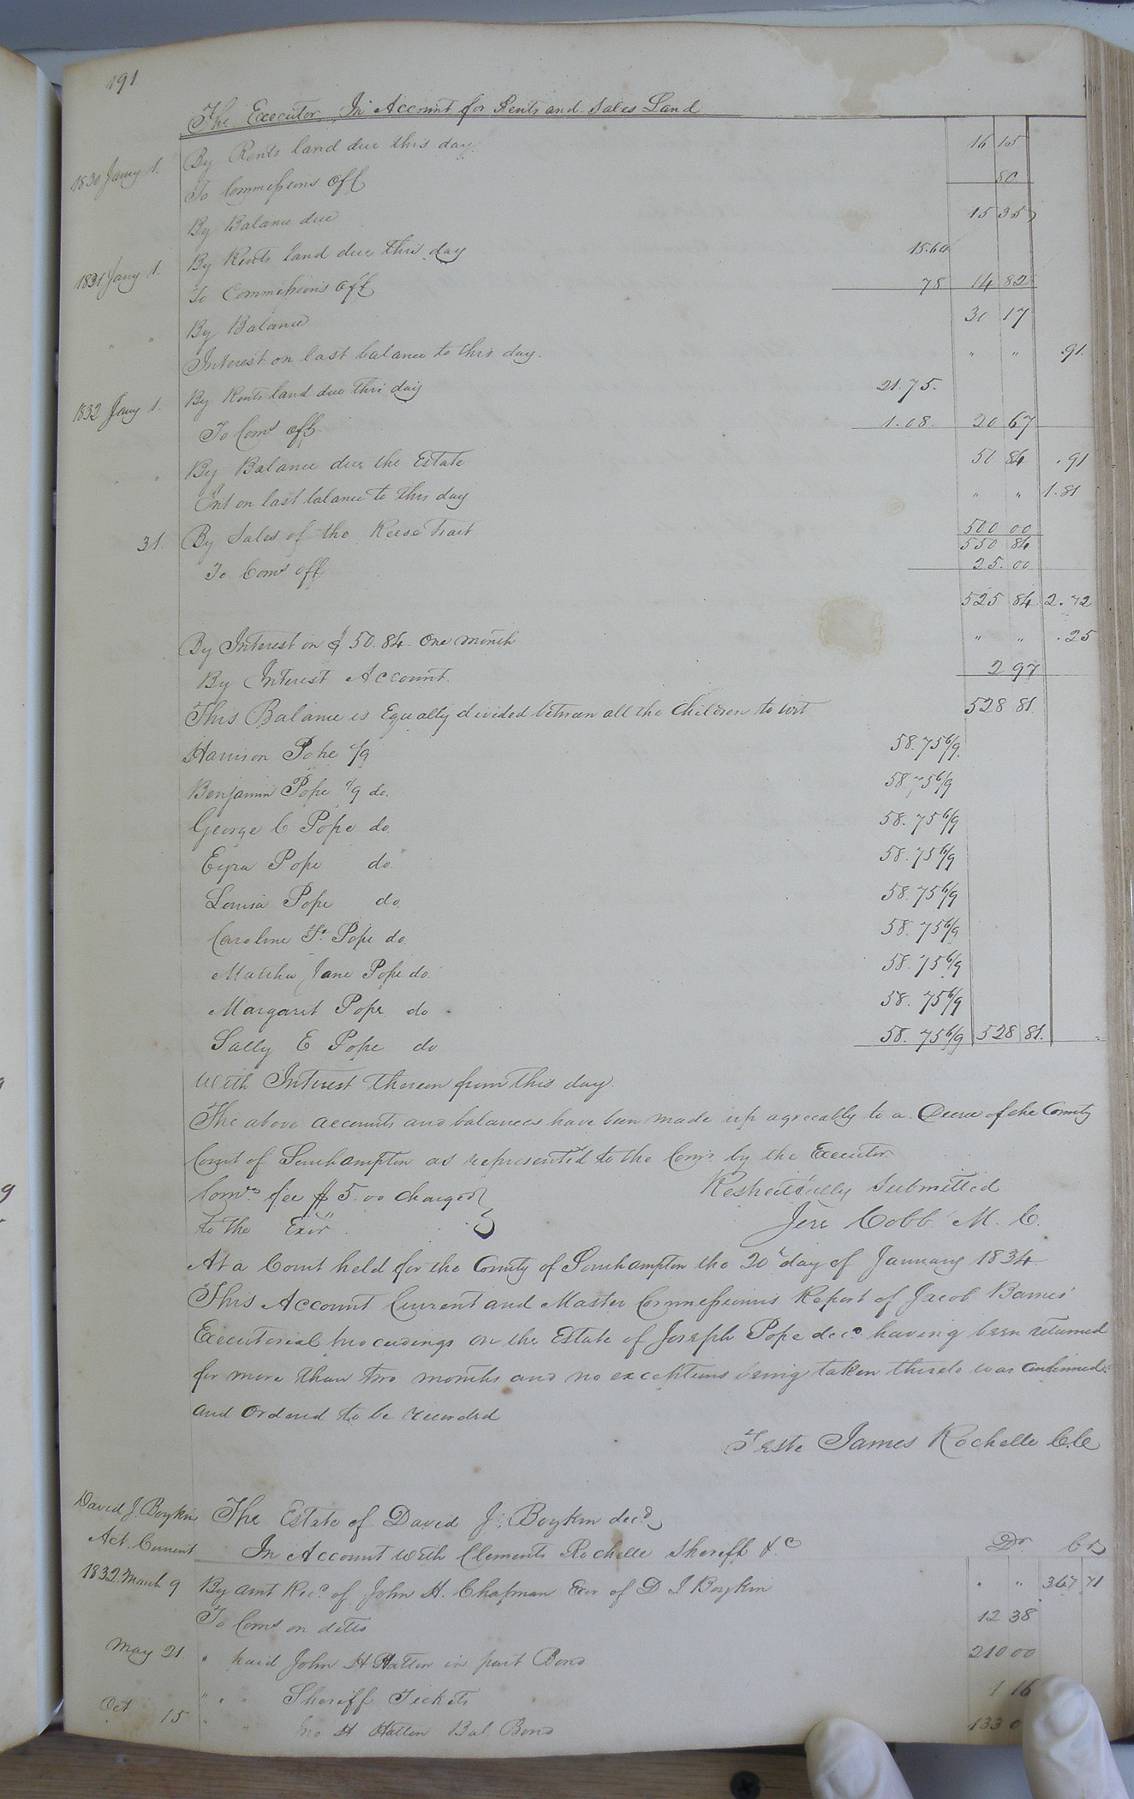 191
The Executor In Account for Rents and Sales Land
1830 Jany 1. By Rents land due this day 16 15
To Commissions off 80
By Balance due 15 35
1831 Jany 1. By Rents land due this day 15.60
To Commissions off 78 14 82
" " By Balance 30 17
Interest on last balance to this day. " " .91
1832 Jany 1. By Rents land due this day 21.75.
To Coms off 1.08 20 67
" By Balance due the Estate 50 84 .91
Int on last balance to this day " " 1.81
31. By Sales of the Reese Tract 500 00
550 84
To Coms off 25.00
525 84 2.72
By Interest on $50.84 One month " " .25
By Interest Account. 2 97
This Balance is Equally divided between all the children to wit 528 81
Harrison Pope 1/9 58.75 6/9
Benjamin Pope 1/9 do. 58.75 6/9
George C Pope do 58.75 6/9
Ezra Pope do 58.75 6/9
Louisa Pope do 58.75 6/9
Caroline F. Pope do. 58.75 6/9
Martha Jane Pope do. 58.75 6/9
Margaret Pope do 58.75 6/9
Sally E Pope do 58.75 6/9 528 81.
With Interest thereon from this day.
The above accounts and balances have been made up agreeably to a Decree of the County
Court of Southampton as represented to the Comr by the Executor
Comrs fee $5.00 charged Respectfully Submitted
to the Exor Jere Cobb M. C.
At a Court held for the County of Southampton the 20th day of January 1834
This Account Current and Master Commissioners Report of Jacob Barnes'
Executorial proceedings on the Estate of Joseph Pope decd having been returned
for more than two months and no exceptions being taken thereto was confirmed
and Ordered to be recorded
Teste James Rochelle C.C
David J. Boykins The Estate of David J. Boykin decd
Act. Current In Account with Clements Rochelle Sheriff &c Dr Cr
1832. March 9 By amt Recd of John H. Chapman Exor of D J Boykin " " 347 71
To Coms on ditto 12 38
May 21. " paid John H Hatton in part Bond 210 00
" " " Sheriff Tickets 1 16
Oct 15 " " Jno H Hatton Bal Bond 133